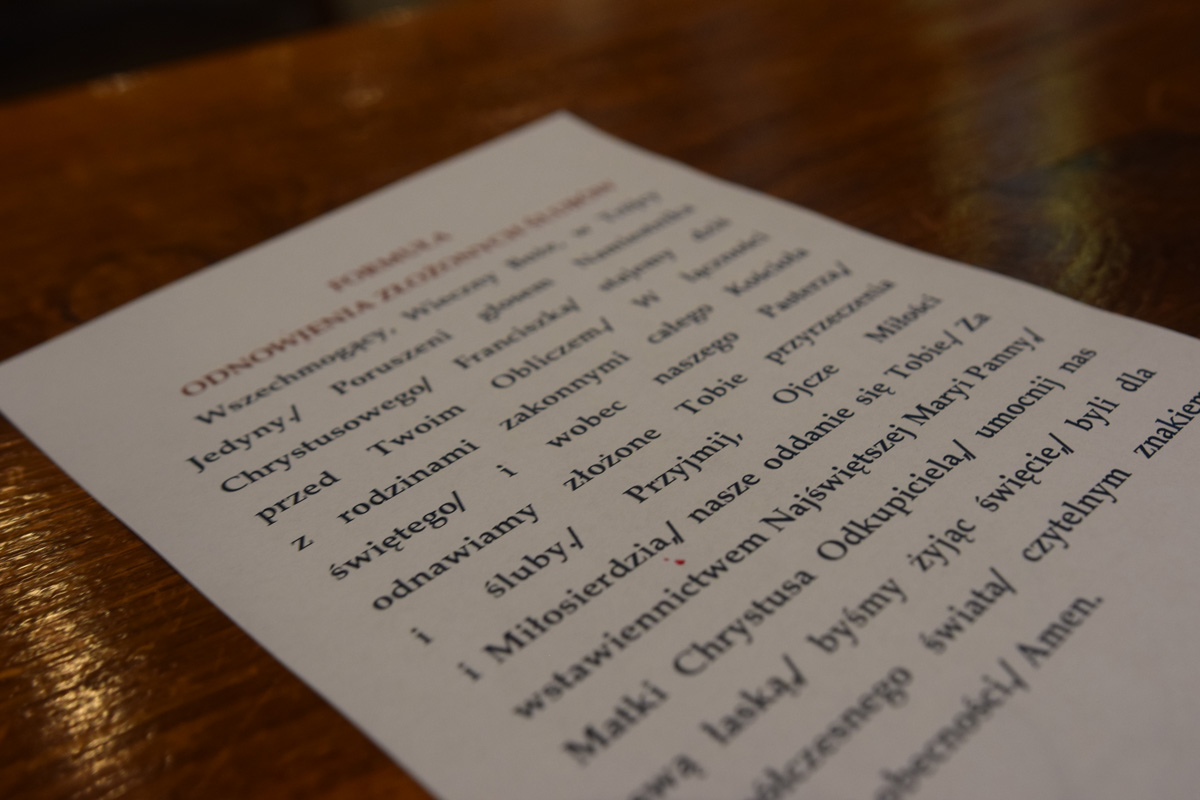 FORMUŁA
ODNOWIENIA ZŁOŻONYCH ŚLUBÓW
Wszechmogący, Wieczny Boże, w Trójcy
Jedyny./ Poruszeni głosem Namiestnika
Chrystusowego/ Franciszka/ stajemy dziś
przed Twoim Obliczem./ W łączności
z rodzinami zakonnymi całego Kościoła
świętego/ i wobec naszego Pasterza,/
odnawiamy złożone Tobie przyrzeczenia
i śluby./ Przyjmij, Ojcze Miłości
i Miłosierdzia,/ nasze oddanie się Tobie./ Za
wstawiennictwem Najświętszej Maryi Panny,/
Matki Chrystusa Odkupiciela,/ umocnij nas
łaską,/ byśmy żyjąc święcie,/ byli dla
świata/ czytelnym znakiem
obecności./ Amen.